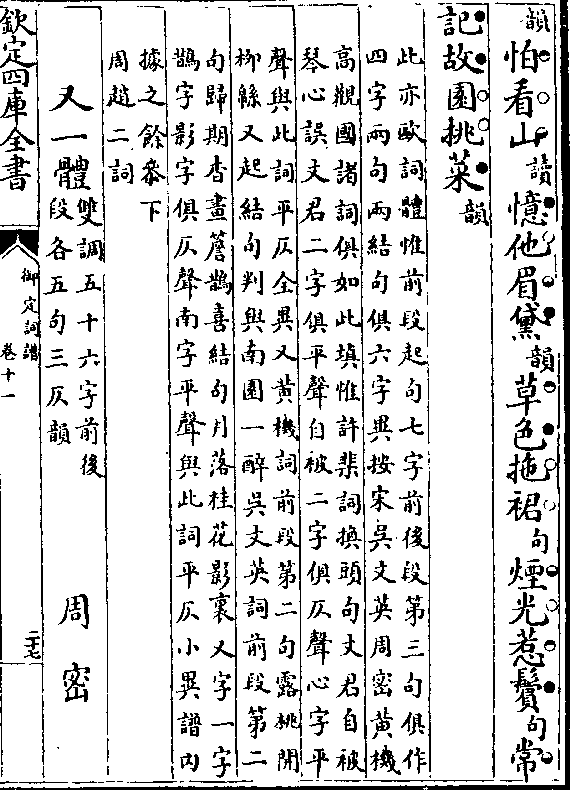 韻怕看山讀憶他眉黛韻草色拖裙句煙光惹鬢句常
記故園挑菜韻
此亦歐詞體惟前段起句七字前後段第三句俱作
四字兩句兩結句俱六字異按宋吳文英周密黃機
高觀國諸詞俱如此填惟許棐詞換頭句文君自被
琴心誤文君二字俱平聲自被二字俱仄聲心字平
聲與此詞平仄全異又黃機詞前段第二句露桃開
柳緜又起結句判與南園一醉吳文英詞前段第二
句歸期杳畫簷鵲喜結句月落桂花影裏又字一字
鵲字影字俱仄聲南字平聲與此詞平仄小異譜內
據之餘參下
周趙二詞
又一體雙調五十六字前後
段各五句三仄韻
周密
欽定四庫全書
御定詞譜
卷十一
二十七